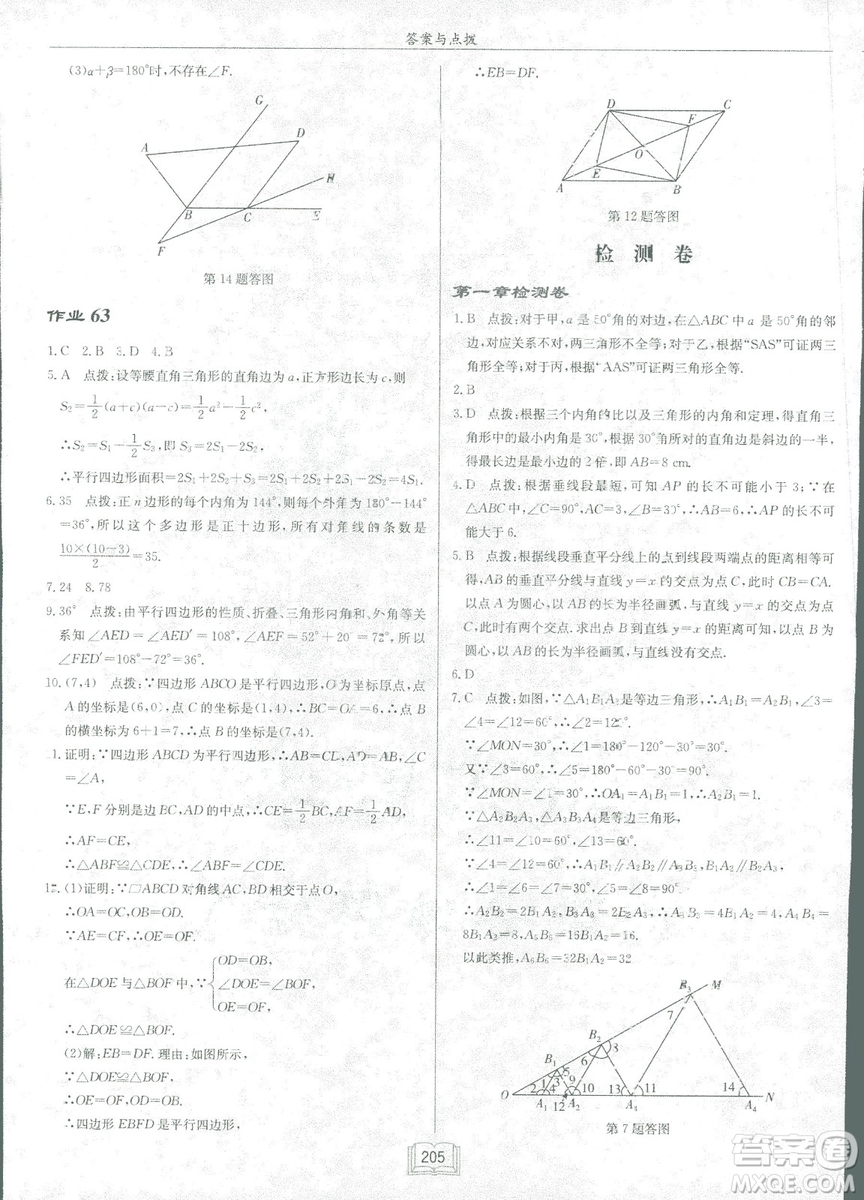 答案与点拨
(3)α+β=180°时,不存在∠F.
G
A
D
H
B
C
E
F
第14题答图
作业 63
1.C 2.B 3.D 4.B
5.A 点拨:设等腰直角三角形的直角边为a,正方形边长为c,则
S₂=1/2(a+c)(a−c)=1/2a²−1/2c²
∴S₂=S₁−1/2S₃,即S₁=S₂+1/2S₃,
∴平行四边形面积=2S₁+2S₂+S₃=2S₁+2S₁=4S₁.
6.35 点拨:正n边形的每个内角为144°,则每个外角为180°−144°
=36°,所以这个多边形是正十边形,所以对角线的条数是
10×(10−3)/2=35.
7.24 8.78
9.36° 点拨:由平行四边形的性质、折叠、三角形内角和、外角等关
系知∠AED=∠AED′=108°,∠AEF=52°+20°=72°,所以
∠FED′=108°−72°=36°.
10.(7,4) 点拨:∵四边形ABCO是平行四边形,O为坐标原点,点
A的坐标是(6,0),点C的坐标是(1,4),∴BC=OA=6,∴点B
的横坐标为6+1=7,∴点B的坐标是(7,4).
1.证明:∵四边形ABCD为平行四边形,∴AD=BC,AB=CD,∠C
=∠A,
∵E,F分别是边BC,AD的中点,∴CE=1/2BC,AF=1/2AD,
∴AF=CE,
∴△ABF≌△CDE.
12.(1)证明:∵□ABCD对角线AC,BD相交于点O,
∴OA=OC,OB=OD.
∵AE=CF,∴OE=OF.
在△DOE与△BOF中,∵{OD=OB,
∠DOE=∠BOF,
OE=OF,
∴△DOE≌△BOF.
(2)解:EB=DF.理由:如图所示,
∵△DOE≌△BOF,
∴OE=OF,OD=OB,
∴四边形EBFD是平行四边形,
∴EB=DF.
D
C
F
O
E
A
B
第12题答图
检测卷
第一章检测卷
1.B 点拨:对于甲,a是50°角的对边,在△ABC中a是50°角的邻
边,对应关系不对,两三角形不全等;对于乙,根据“SAS”可证两三
角形全等;对于丙,根据“AAS”可证两三角形全等.
2.B
3.D 点拨:根据三个内角的比以及三角形的内角和定理,得直角三
角形中的最小内角是30°,根据30°角所对的直角边是斜边的一半,
得最长边,即AB=8 cm.
4.D 点拨:根据垂线段最短,可知AP的长不可能小于3;∵在
△ABC中,∠C=90°,AC=3,∠B=30°,∴AB=6,∴AP的长不可
能大于6.
5.B 点拨:根据线段垂直平分线上的点到线段两端点的距离相等可
得,AB的垂直平分线与直线y=x的交点为点C,此时CB=CA.
以点A为圆心,以AB的长为半径画弧,与直线y=x的交点为点
C,此时有两个交点.求出点B到直线y=x的距离可知,以点B为
圆心,以AB的长为半径画弧,与直线没有交点.
6.D
7.C 点拨:如图,∵△A₁B₁A₂是等边三角形,∴A₁B₁=A₂B₁,∠3
=∠4=∠12=60°,∴∠2=120°.
∵∠MON=30°,∴∠1=180°−120°−30°=30°.
又∵∠3=60°,∴∠5=180°−60°−30°=90°.
∵∠MON=∠1=30°,∴OA₁=A₁B₁=1,∴A₂B₁=1.
∵△A₂B₂A₃、△A₃B₃A₄是等边三角形,
∴∠11=∠10=60°,∠13=60°.
∵∠4=∠12=60°,∴A₁B₁∥A₂B₂∥A₃B₃,B₁A₂∥B₂A₃,
∴∠1=∠6=∠7=30°,∠5=∠8=90°,
∴A₂B₂=2A₁B₂,B₃A₃=2B₂A₃,
∴A₃B₃=4B₁A₂=4,A₄B₄=8B₁A₂=8,A₅B₅=16B₁A₂=16.
以此类推,A₆B₆=32B₁A₂=32
M
B₃
7
B₂
8
6
B₁
5
2
1
3
4
9
10
13
11
14
O
A₁
12
A₂
A₃
A₄
N
第7题答图
205
答案圈
MXQE.COM